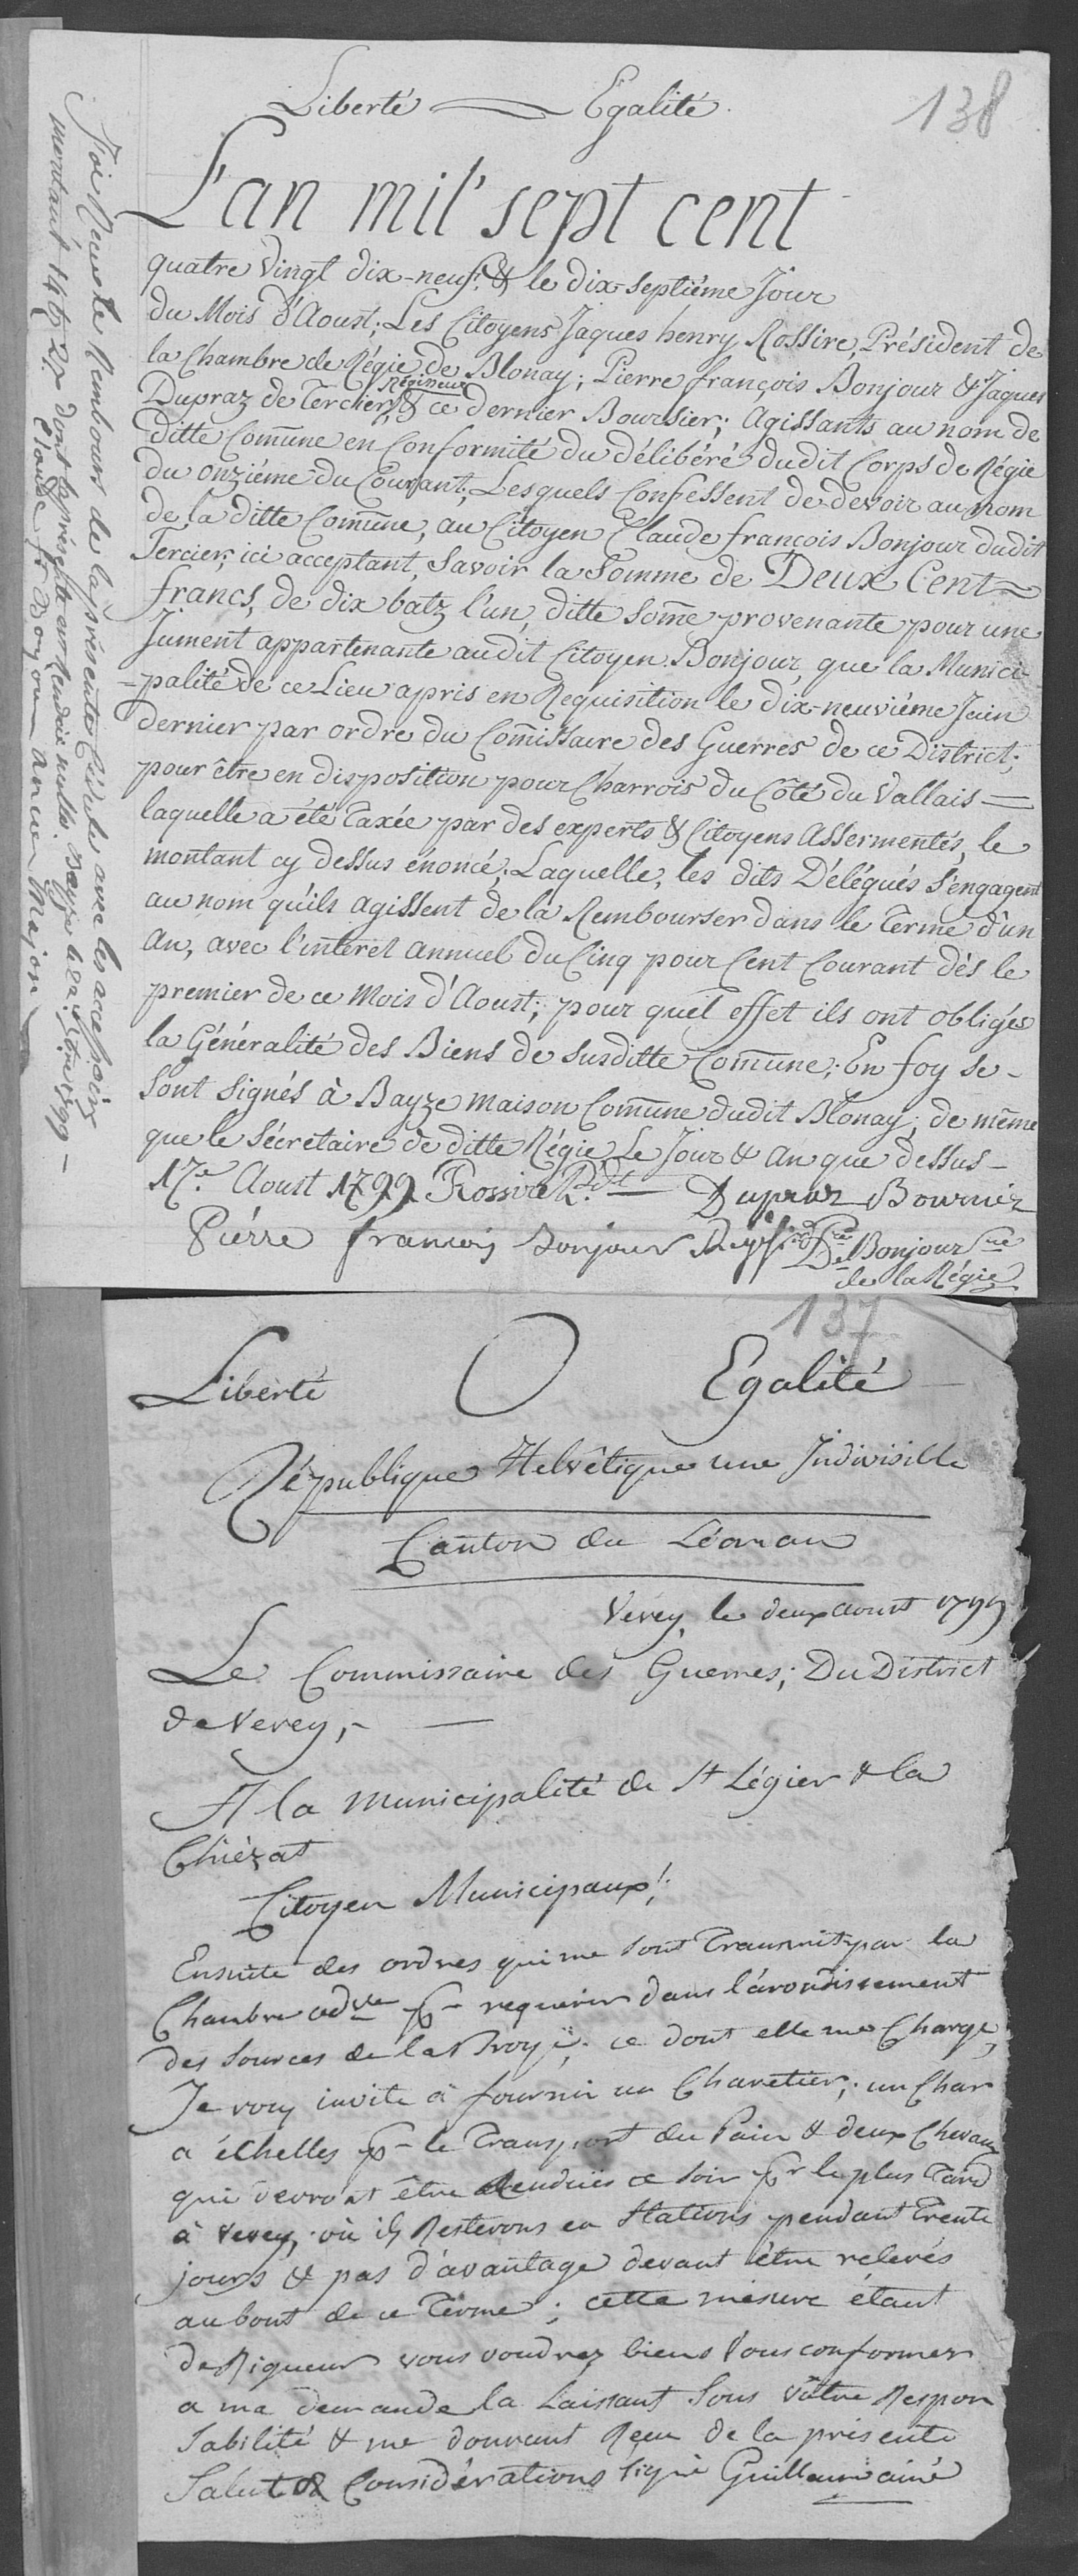 138
Liberté Egalité
L'an mil' sept cent
quatre vingt dix-neuf, & le dix-septiéme Jour
du Mois d'Aoust; Les Citoyens Jaques henry Rossire, Président de
la Chambre de Régie de Blonay; Pierre françois Bonjour & Jaques
Régisseur
Dupraz de Tercier, & ce dernier Boursier; Agissants au nom de
ditte Comune en Conformité du délibéré dudit Corps de Régie
du onziéme du Courant; Lesquels Confessent de devoir au nom
de la ditte Comune, au Citoyen Claude françois Bonjour dudit
Tercier, ici acceptant, Savoir la Somme de Deux Cent
francs, de dix batz l'un, ditte some provenante pour une
Jument appartenante audit Citoyen Bonjour, que la Munici-
-palité de ce Lieu apris en Requisition le dix-neuviéme Juin
dernier par ordre du Comissaire des Guerres de ce District;
pour être en disposition pour Charrois du Côté du Vallais =
laquelle a été Taxée par des experts & Citoyens Assermentés, le
montant cy dessus énoncé; Laquelle, les dits Délégués s'engagent
au nom qu'ils agissent de la Rembourser dans le Terme d'un
An, avec l'interet Annuel du Cinq pour Cent Courant dès le
premier de ce Mois d'Aoust; pour quel effet ils ont obligés
la Généralité des Biens de susditte Comune; En foy se-
sont signés à Bayze maison Comune dudit Blonay; de même
que le Sécretaire de ditte Régie, Le Jour & An que dessus -
17e. Aoust 1799 Rossire Pdt - Dupraz Boursier
Piérre francois Bonjour
De Bonjour Sre
de la Régie
J'ai Recu le Rembours de la présente Cédule avec les accessoires
montant dont la présente est Rendue nulle. Bayse le
Claude fs Bonjour Ancien Major
137
Liberté Egalité
République Helvêtique une Indivisible
Canton du Léman
Vevey, le deux aoust 1799
Le Commissaire des Guerres; Du District
de Vevey, -
A la Municipalité de St Légier & la
Chiézat
Citoyen Municipaux!
Ensuite des ordres qui me sont Transmit par la
Chambre advve pr requerir dans l'árondissement
des sources de la Broye; ce dont elle me Charge,
Je vous invite à fournir un Charetier; un Char
a échelles pr le Transport du Pain & deux Chevaux
qui devront être Renduës ce soir pr le plus Tard
à Vevey, où ils Resterons en Stations pendant Trente
jours & pas d'avantage devant être relevés
au bout de ce Terme; cette mesure étant
de Rigueur vous voudrez biens Vous conformer
a ma demande la Laissant sous vôtre Respon
sabilité & me donnant Recu de la présente
Salut & Considérations signé Guillaume ainé